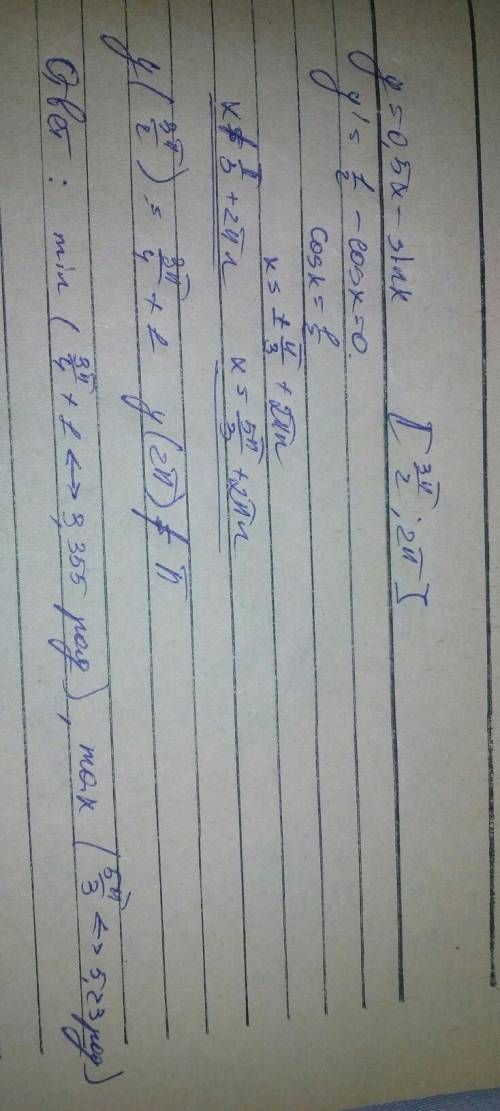 y = 0,5x - sinx [3π/2; 2π]
y' = 1/2 - cosx = 0
cosx = 1/2
x = ± π/3 + 2πn
x = π/3 + 2πn x = 5π/3 + 2πn
y(3π/2) = 3π/4 + 1 y(2π) = π
Ответ: min (3π/4 + 1 <-> 3,355 рад), max (5π/3 <-> 5,23 рад)